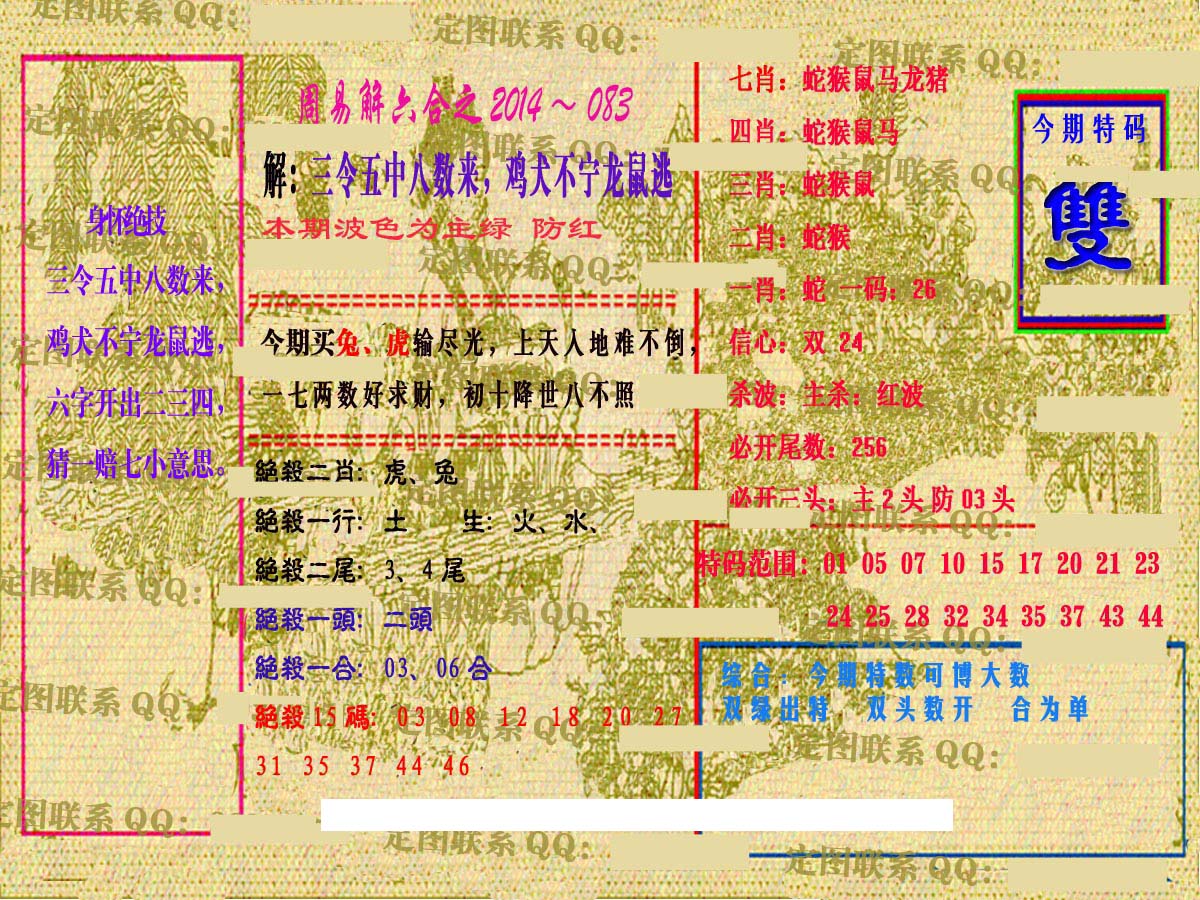 周易解六合之2014～083
解：三令五中八数来，鸡犬不宁龙鼠逃
本期波色为主绿 防红
身怀绝技
三令五中八数来，
鸡犬不宁龙鼠逃，
六字开出二三四，
猜一赔七小意思。
今期买兔、虎输尽光，上天入地难不倒，
一七两数好求财，初十降世八不照
絕殺二肖：虎、兔
絕殺一行：土 生：火、水、
絕殺二尾：3、4尾
絕殺一頭：二頭
絕殺一合：03、06合
絕殺15碼：03 08 12 18 20 27
31 35 37 44 46
七肖：蛇猴鼠马龙猪
四肖：蛇猴鼠马
三肖：蛇猴鼠
二肖：蛇猴
一肖：蛇 一码：26
信心：双 24
杀波：主杀：红波
必开尾数：256
必开三头：主2头防03头
今期特码
雙
特码范围：01 05 07 10 15 17 20 21 23
24 25 28 32 34 35 37 43 44
综合：今期特数可博大数
双绿出特 双头数开 合为单
定图联系QQ：
定图联系QQ：
定图联系QQ：
定图联系QQ：
定图联系QQ：
定图联系QQ：
定图联系QQ：
定图联系QQ：
定图联系QQ：
定图联系QQ：
定图联系QQ：